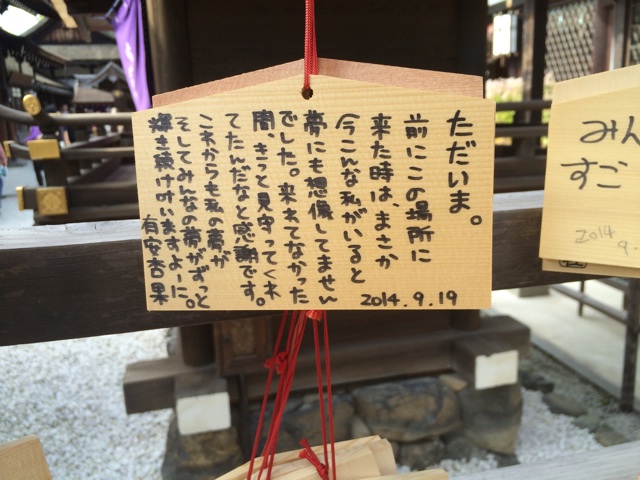 ただいま。
前にこの場所に
来た時は、まさか
今こんな私がいると
夢にも想像してません
でした。来れてなかった
間、きっと見守ってくれ
てたんだなと感謝です。
これからも私の夢が
そしてみんなの夢がずっと
輝き続けていますよーに。
有安杏果
2014.9.19
みん
すご
2014
9.